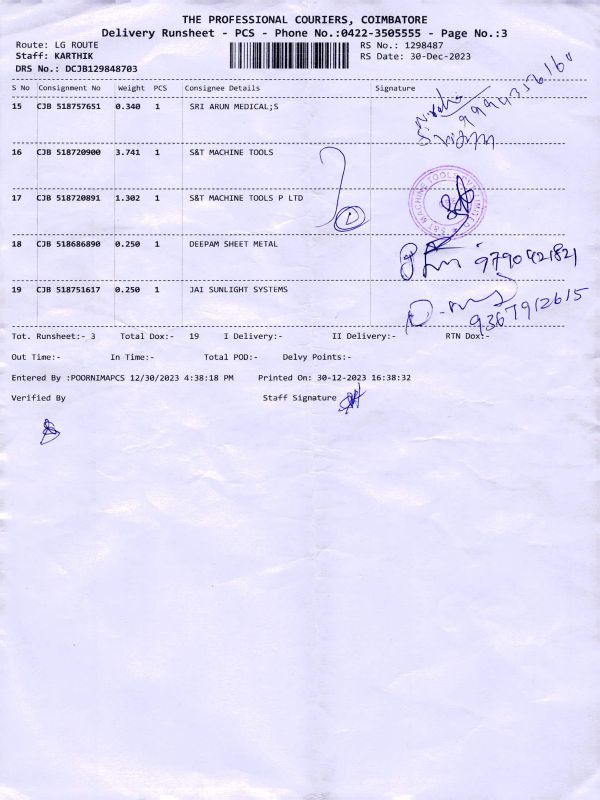 THE PROFESSIONAL COURIERS, COIMBATORE
Delivery Runsheet - PCS - Phone No.:0422-3505555 - Page No.:3
Route: LG ROUTE RS No.: 1298487
Staff: KARTHIK RS Date: 30-Dec-2023
DRS No.: DCJB129848703
S No Consignment No Weight PCS Consignee Details Signature
15 CJB 518757651 0.340 1 SRI ARUN MEDICAL;S
16 CJB 518720900 3.741 1 S&T MACHINE TOOLS
17 CJB 518720891 1.302 1 S&T MACHINE TOOLS P LTD
18 CJB 518686890 0.250 1 DEEPAM SHEET METAL 9790421821
19 CJB 518751617 0.250 1 JAI SUNLIGHT SYSTEMS 9367912615
Tot. Runsheet:- 3 Total Dox:- 19 I Delivery:- II Delivery:- RTN Dox:-
Out Time:- In Time:- Total POD:- Delvy Points:-
Entered By :POORNIMAPCS 12/30/2023 4:38:18 PM Printed On: 30-12-2023 16:38:32
Verified By Staff Signature